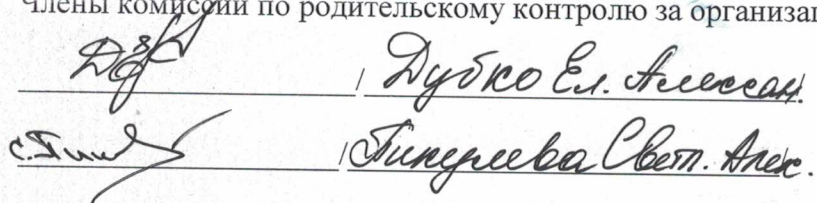 Члены комиссии по родительскому контролю за организа
/ Дубко Ел. Алексан.
/ Пикулева Светл. Алек.